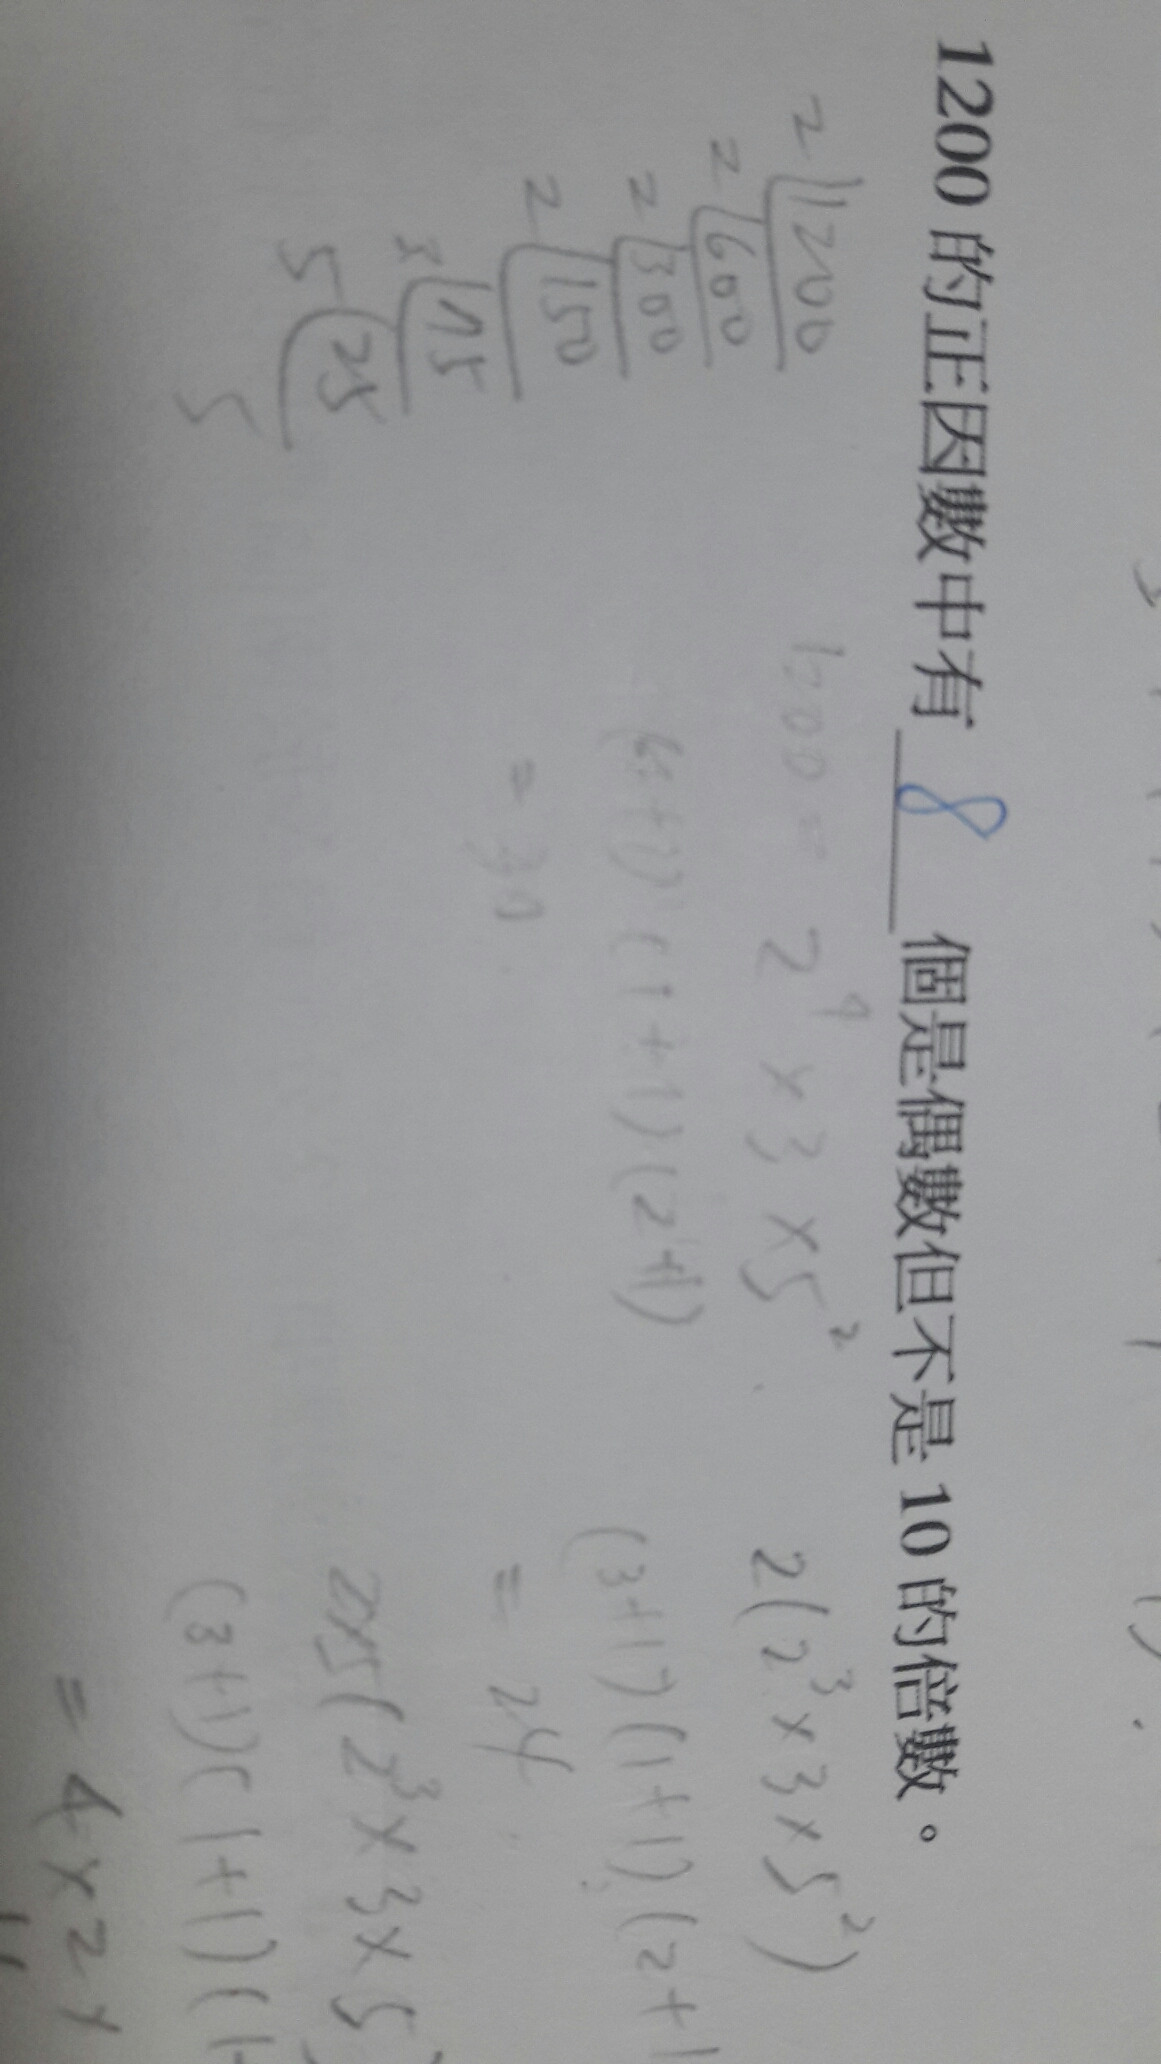 1200 的正因數中有 8 個是偶數但不是 10 的倍數。
2 1200
2 600
2 300
2 150
3 75
5 25
5
1200 = 2⁴ × 3 × 5²
(1+1) (2+1)
= 30
2(2³ × 3 × 5²)
(3+1)(1+1)(2+1
= 24
2×5(2³ × 3 × 5)
(3+1)(1+1)(1
= 4 × 2 ×